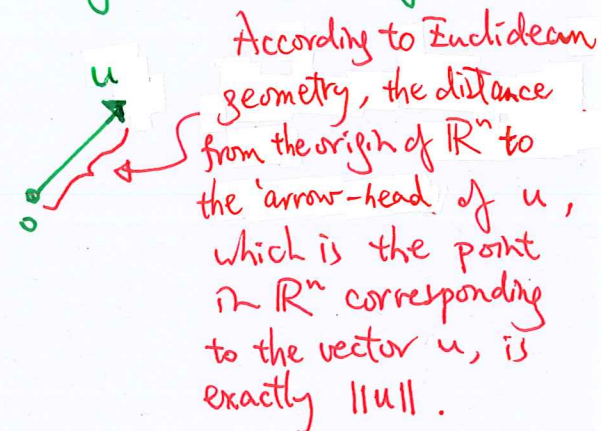 According to Euclidean
u
geometry, the distance
from the origin of ℝⁿ to
the 'arrow-head of u,
0
which is the point
in ℝⁿ corresponding
to the vector u, is
exactly ||u||.